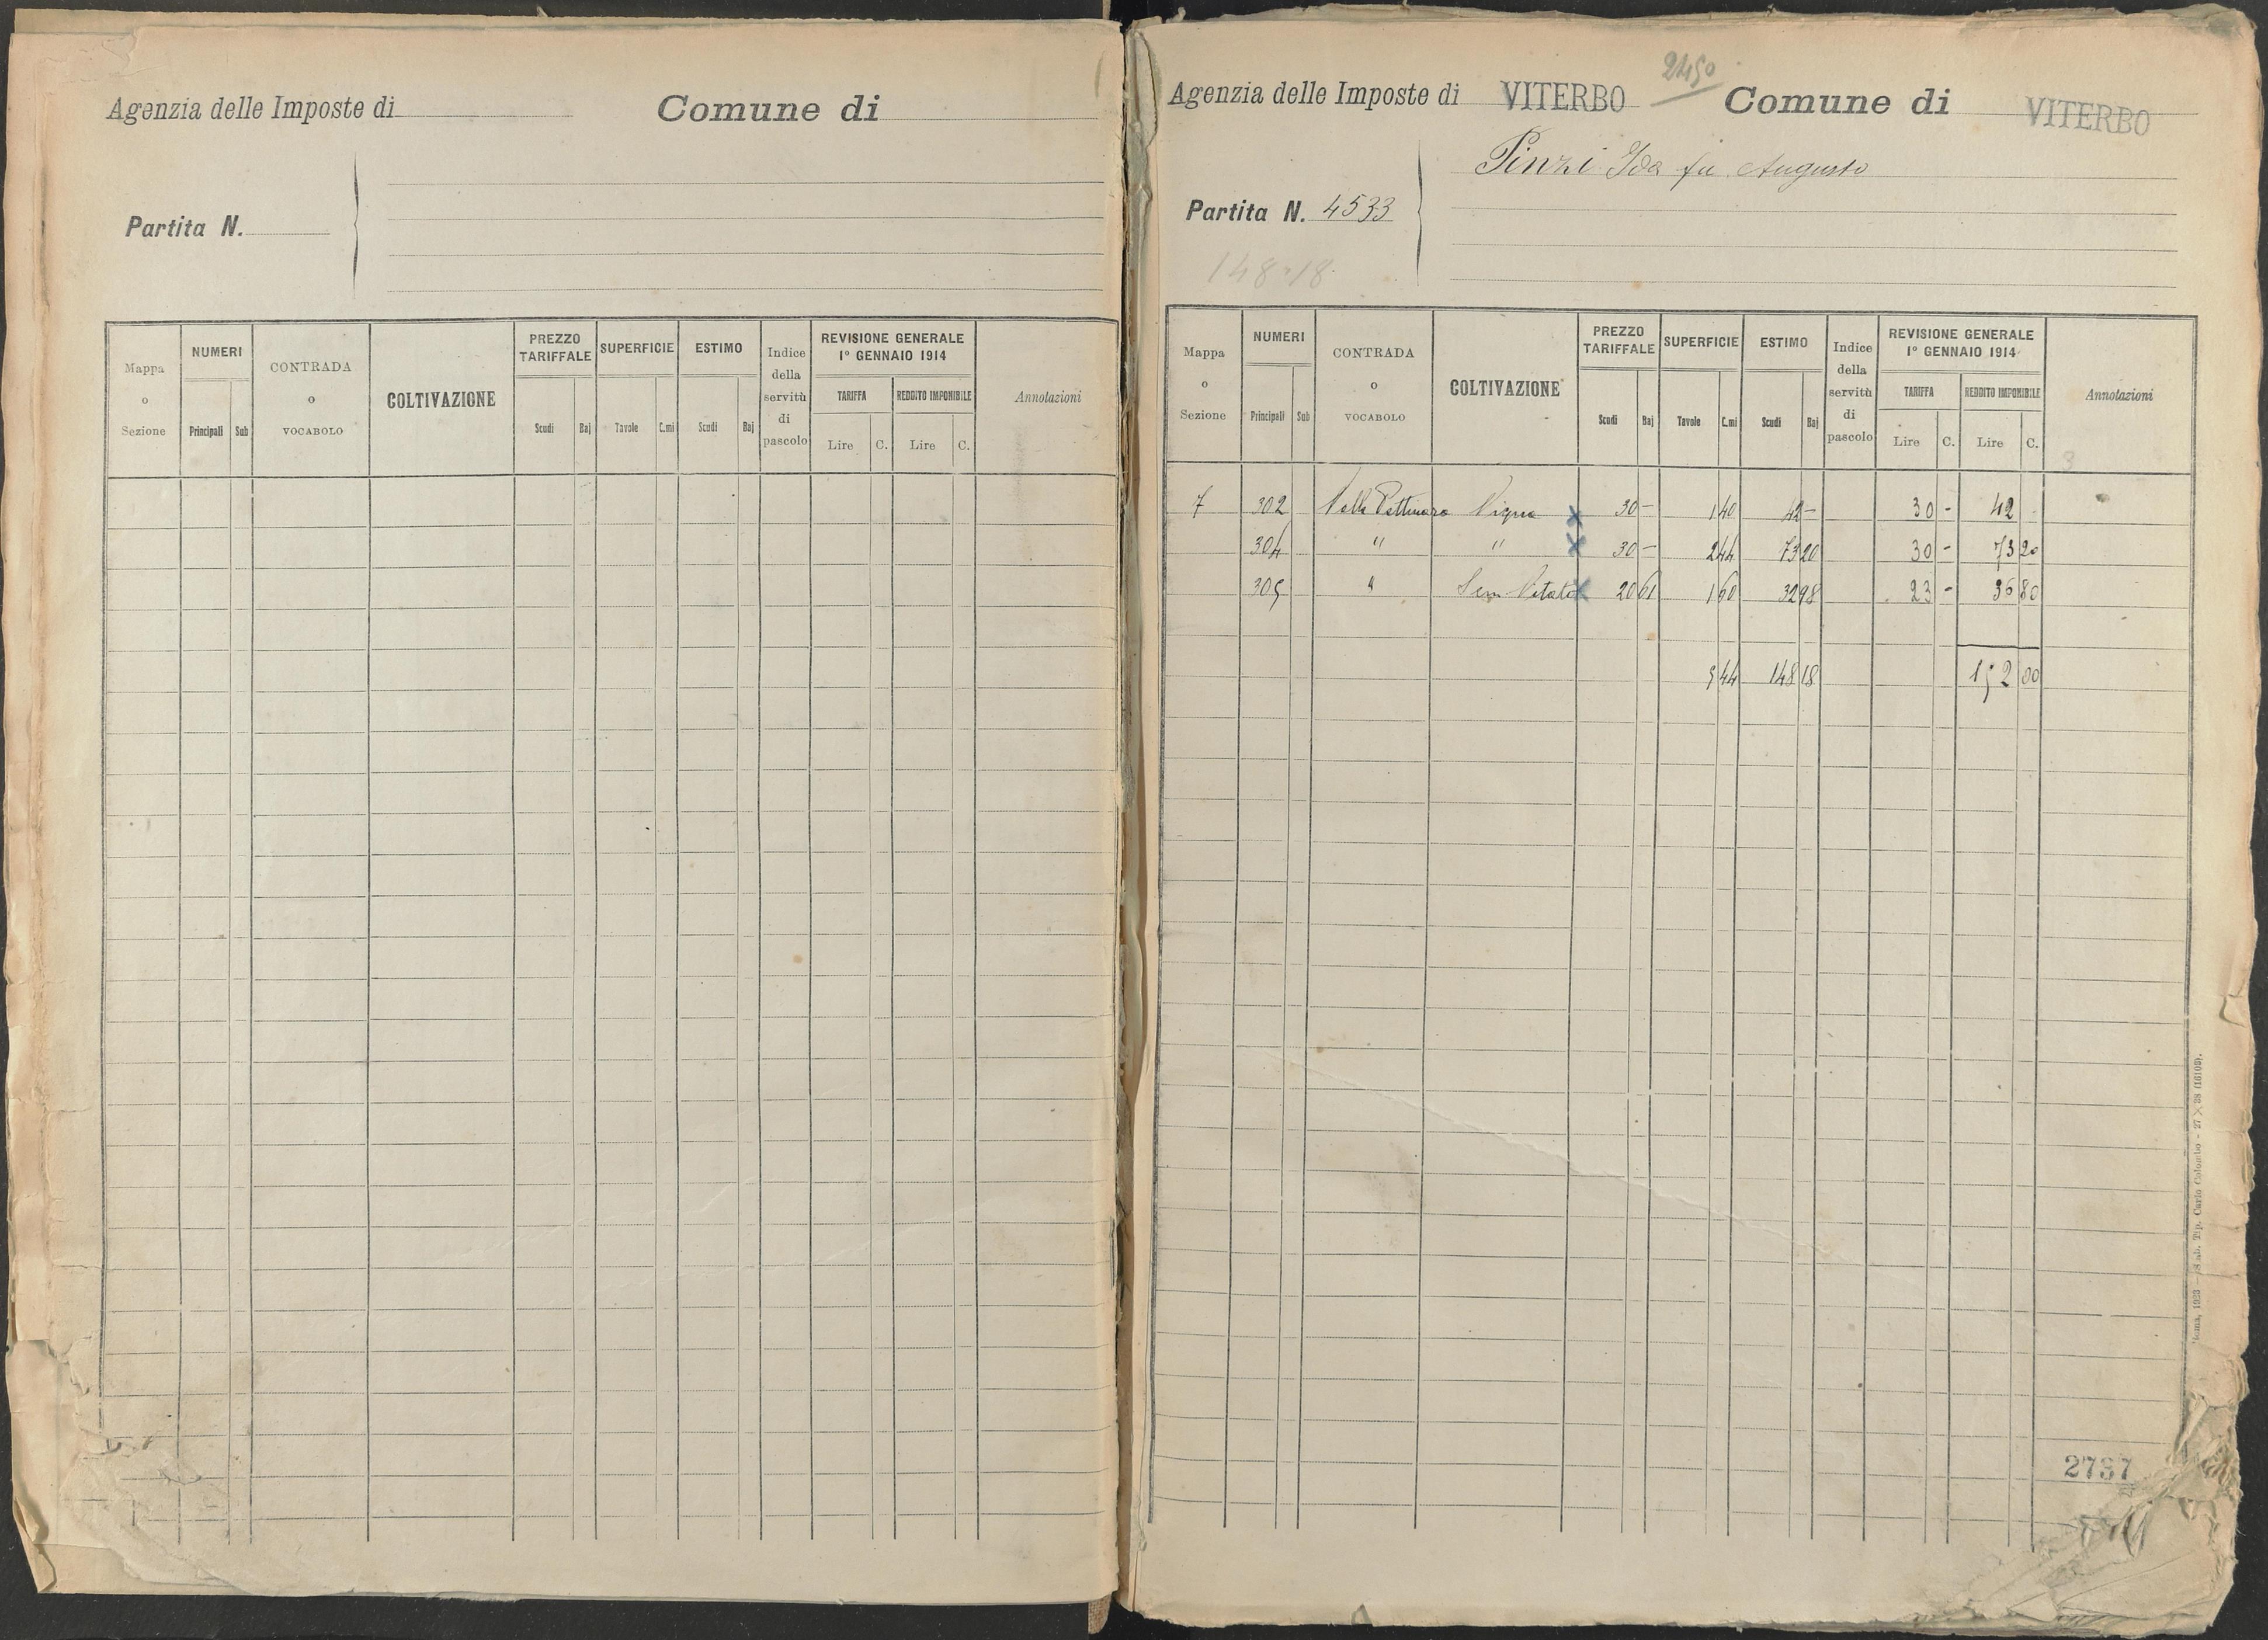 Agenzia delle Imposte di
Comune di
Partita N.
Mappa o Sezione
NUMERI
Principali
Sub
CONTRADA o VOCABOLO
COLTIVAZIONE
PREZZO TARIFFALE
Scudi
Baj
SUPERFICIE
Tavole
C.mi
ESTIMO
Scudi
Baj
Indice della servitù di pascolo
REVISIONE GENERALE
1° GENNAIO 1914
TARIFFA
Lire
C.
REDDITO IMPONIBILE
Lire
C.
Annotazioni
2450
Agenzia delle Imposte di VITERBO
Comune di VITERBO
Pinzi Ida fu Augusto
Partita N. 4533
148.18
Mappa o Sezione
NUMERI
Principali
Sub
CONTRADA o VOCABOLO
COLTIVAZIONE
PREZZO TARIFFALE
Scudi
Baj
SUPERFICIE
Tavole
C.mi
ESTIMO
Scudi
Baj
Indice della servitù di pascolo
REVISIONE GENERALE
1° GENNAIO 1914
TARIFFA
Lire
C.
REDDITO IMPONIBILE
Lire
C.
Annotazioni
3
7 302 Valle Pettinaro Vigna x 30 - 1 40 42 - 30 - 42
304 " " x 30 - 2 44 73 20 30 - 73 20
305 " Sem Vitato x 20 61 1 60 32 98 23 - 36 80
5 44 148 18 152 00
2797
Roma, 1923 - Stab. Tip. Carlo Colombo - 27 × 38 (16103).